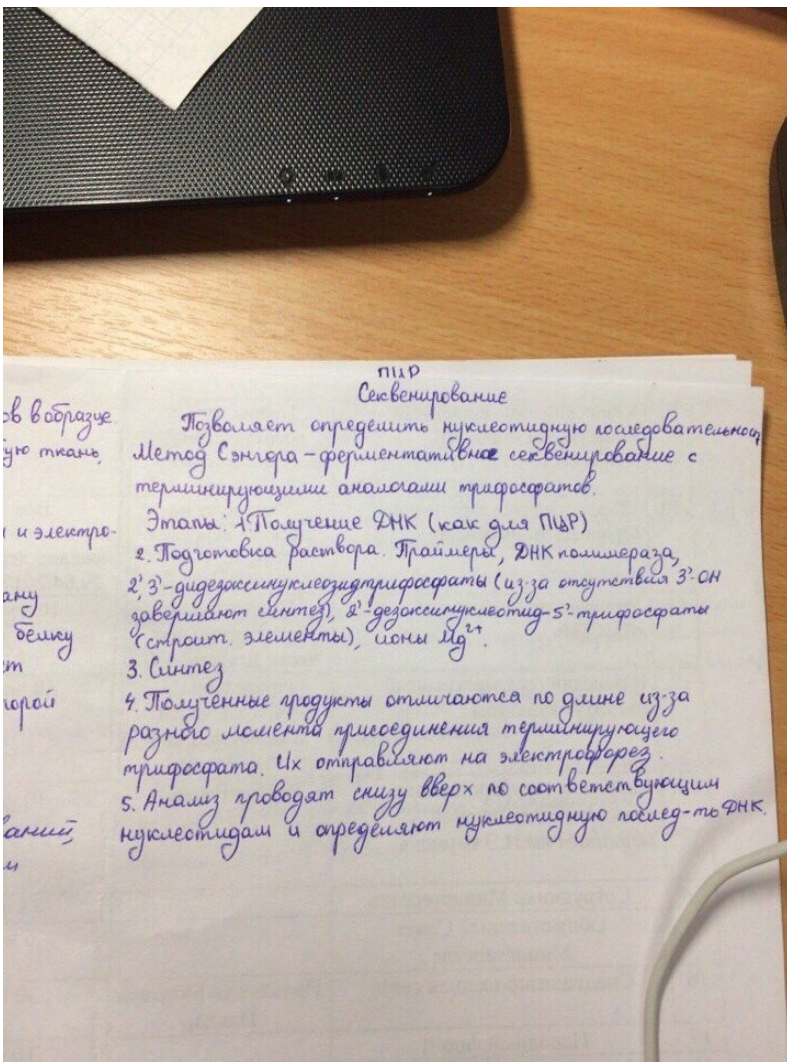 ПЦР
Секвенирование
ов в образце.
Позволяет определить нуклеотидную последовательность
ую ткань,
Метод Сэнгора – ферментативное секвенирование с
терминирующими аналогами трифосфатов.
и электро-
Этапы: 1 Получение ДНК (как для ПЦР)
2. Подготовка раствора. Праймеры, ДНК полимераза,
ану
2' 3'-дидезоксинуклеозидтрифосфаты (из-за отсутствия 3'-OH
завершают синтез), 2'-дезоксинуклеотид-5'-трифосфаты
белку
(строит. элементы), ионы Mg2+.
3. Синтез
торой
4. Полученные продукты отличаются по длине из-за
разного момента присоединения терминирующего
трифосфата. Их отправляют на электрофорез.
5. Анализ проводят снизу вверх по соответствующим
ваний,
нуклеотидам и определяют нуклеотидную послед-ть ДНК.